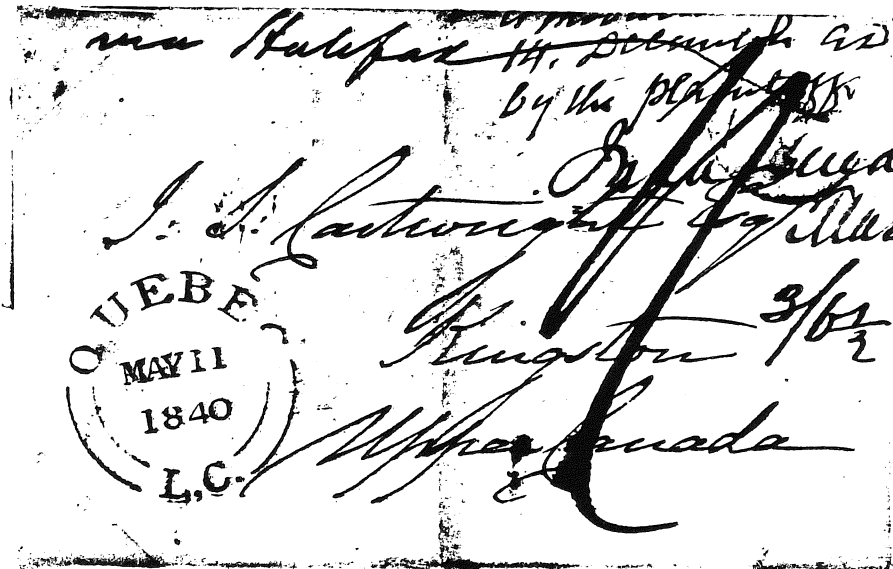 via Halifax
14. December
by the plaintiff
J. S. Cartwright Esq
Kingston
3/6½
Upper Canada
QUEBEC
MAY 11
1840
L.C.